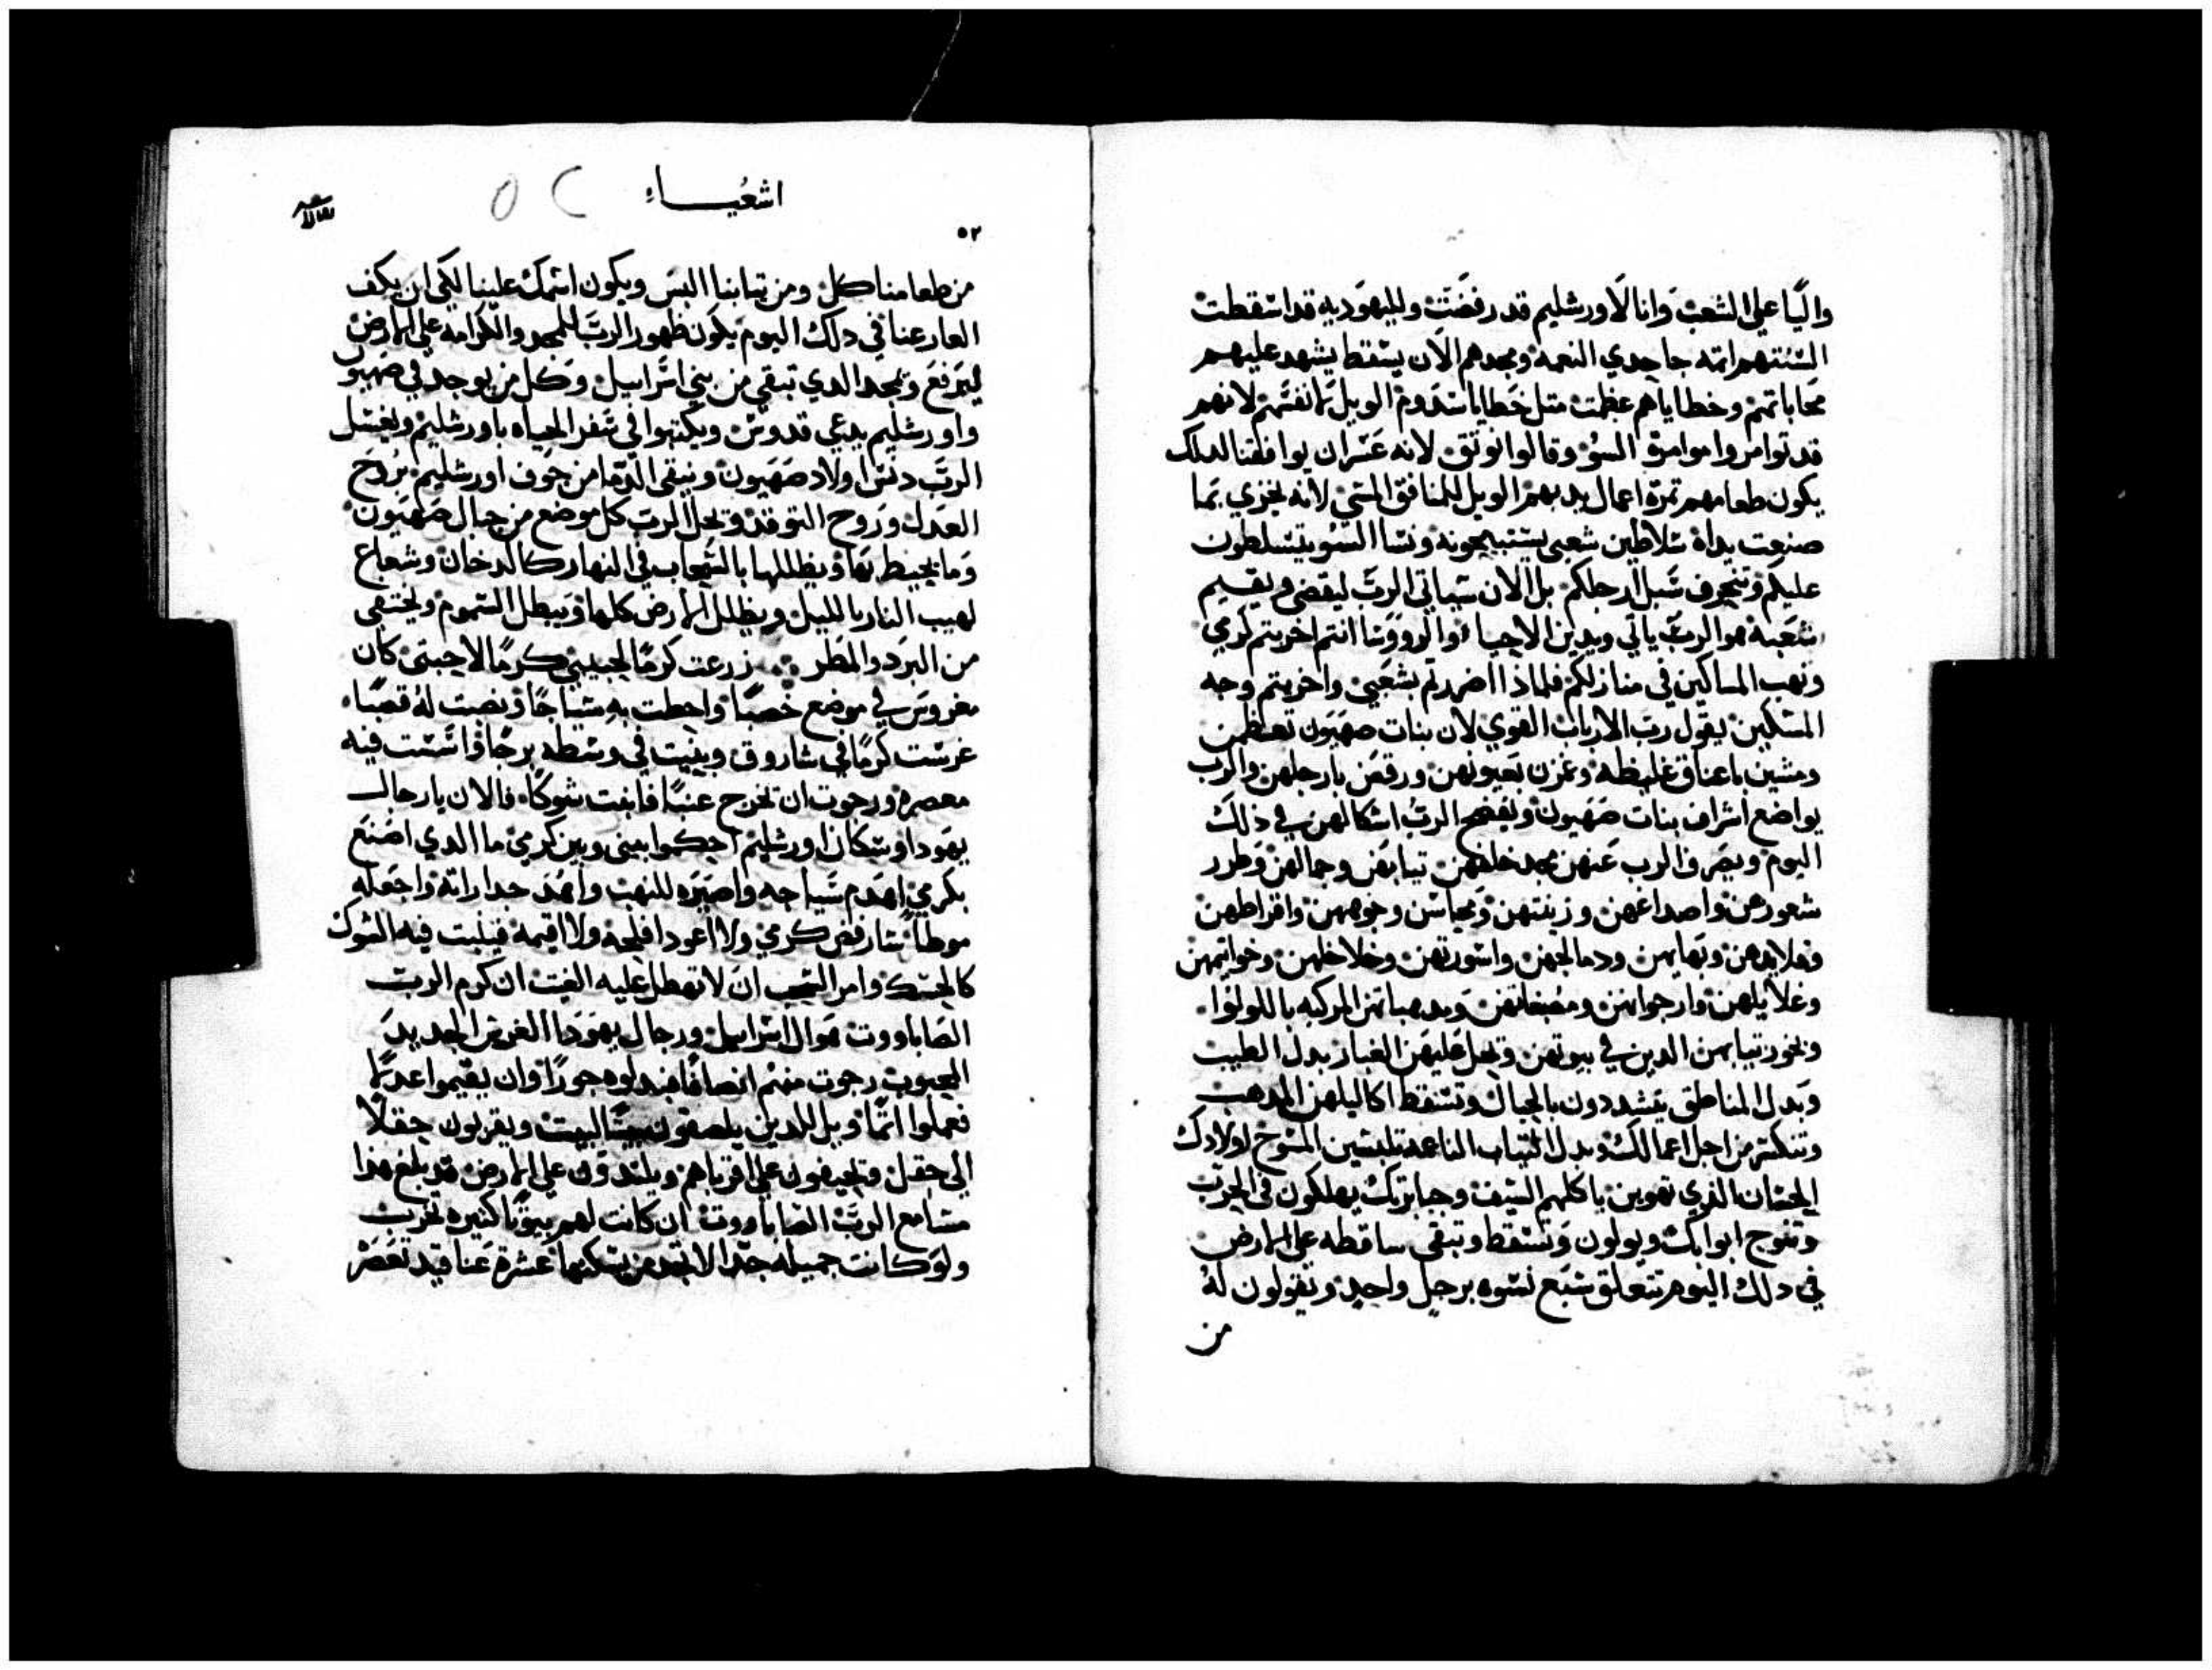 واليا على الشعب وانا لاورشليم قد رفضت ولليهوديه قد اسقطت
السنتهم اته جاحدي النعمه ومجدهم الان يسقط يشهد عليهم
محاباتهم وخطاياهم عظمت متل خطايا سدوم الويل لانفسهم لانهم
قد توامروا موامرة السؤ وقالوا نوتق لانه عسران يوافقنا لدلك
يكون طعامهم تمرة اعمال يديهم الويل للمنافق المسي لانه يخزي بما
صنعت يداه سلاطين شعبي يستبيحونه ونسا السو يتسلطون
عليكم وتنحرف سبل ارجلكم بل الان سياتي الرب ليقضي ويقيم
شعبه هو الرب ياتي ويدين الاحيا والرووسا انتم اخربتم كرمي
ونهب المساكين في منازلكم فلماذا اضررتم بشعبي واخزيتم وجه
المسكين يقول رب الارباب القوي لان بنات صهيون تعظمن
ومشين باعناق غليظه وغمزن بعيونهن ورقصن بارجلهن والرب
يواضع اشراف بنات صهيون ويفضح الرب اشكالهن في ذلك
اليوم ويصرف الرب عنهن مجد تيابهن وجمالهن وطرر
شعورهن واصداغهن وزينتهن ومحاسن وجوههن واقراطهن
وقلايدهن ودمالجهن واسورتهن وخلاخلهن وخواتمهن
وغلايلهن وارجوانهن ومصبغاتهن ومدهباتهن المركبه باللولوا
وبخور تيابهن الدين في بيوتهن ويحل عليهن الغبار بدل الطيب
وبدل المناطق يتشددون بالحبال وتسقط اكاليلهن المدهب
وتنكتر من اجل اعمالك وبدل التياب الناعمه تلبسين المسوح لاولادك
الحسان الذي تهوين ياكلهم السيف وجبابرتك يهلكون في الحرب
وتنوح ابوابك ويولون وتسقط وتبقي ساقطه على الارض
في دلك اليوم تتعلق سبع نسوه برجل واحد وتقولون له
من
اشعياء
٥٢
من طعامنا كل ومن تيابنا البس ويكون اسمك علينا لكي ان يكف
العار عنا في دلك اليوم يكون ظهور الرب للمجد والكرامه على الارض
ليرفع ويمجد الدي تبقي من بني اسراييل وكل من يوجد في صهيون
واورشليم يدعي قدوس ويكتبوا في سفر الحياه باورشليم ويغسل
الرب دنس اولاد صهيون وينقى الدما من جوف اورشليم بروح
العدل وروح التوقد ويحل الرب كل موضع من جبال صهيون
وما يحيط بها ويظللها بالسحاب في النهار كالدخان وشعاع
لهيب النار بالليل ويظلل الارض كلها ويبطل السموم ويختفي
من البرد والمطر زرعت كرما لحبيبي كرما لاحبتي كان
مغروس في موضع خصبا واحطت به سياجا ونصبت له قصبا
غرست كرما في شاروق وبنيت في وسطه برجا واسست فيه
معصره ورجوت ان تخرج عنبا فانبت شوكا فالان يا رجال
يهودا وسكان اورشليم احكموا بيني وبين كرمي ما الدي اصنع
بكرمي اهدم سياجه واصيره للنهب واهد جداراته واجعله
موطا سارفض كرمي ولا اعود افلحه ولا اقيمه فينبت فيه الشوك
كالحسك وامر السحب ان لا تهطل عليه الغيت ان كرم الرب
الصاباووت هو ال اسراييل ورجال يهودا الغرس الجديد
المحبوب رجوت منهم انصافا فبدلوه جورا وان يقيموا عدلا
فعملوا اتما ويل للدين يلصقون بيتا لبيت ويقربون حقلا
الى حقل ويحيفون على اقرباهم ويلتدون على الارض قد بلغ هذا
مسامع الرب الصاباووت ان كانت لهم بيوتا كتيره تخرب
ولو كانت جميله جدا لا تجد من يسكنها عشرة عناقيد تعصر